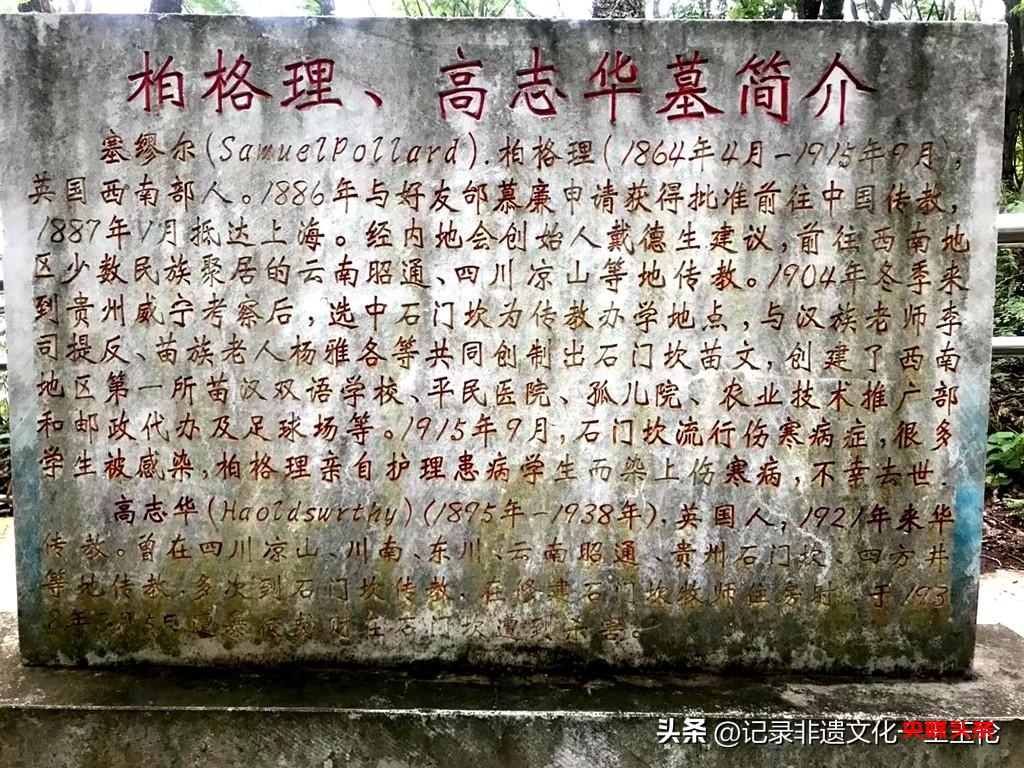 柏格理、高志华墓简介
塞缪尔(SamuelPollard).柏格理(1864年4月-1915年9月),
英国西南部人。1886年与好友邰慕廉申请获得批准前往中国传教,
1887年1月抵达上海。经内地会创始人戴德生建议,前往西南地
区少数民族聚居的云南昭通、四川凉山等地传教。1904年冬季来
到贵州威宁考察后,选中石门坎为传教办学地点,与汉族老师李
司提反、苗族老人杨雅各等共同创制出石门坎苗文,创建了西南
地区第一所苗汉双语学校、平民医院、孤儿院、农业技术推广部
和邮政代办及足球场等。1915年9月,石门坎流行伤寒病症,很多
学生被感染,柏格理亲自护理患病学生而染上伤寒病,不幸去世.
高志华(Haoldsurthy)(1895年-1938年).英国人,1921年来华
传教。曾在四川凉山、川南、东川、云南昭通、贵州石门坎、四方井
等地传教.多次到石门坎传教.在修建石门坎牧师住房时.于193
年 月5日 在石门坎遭到 害。
头条 @记录非遗文化
央媒头条